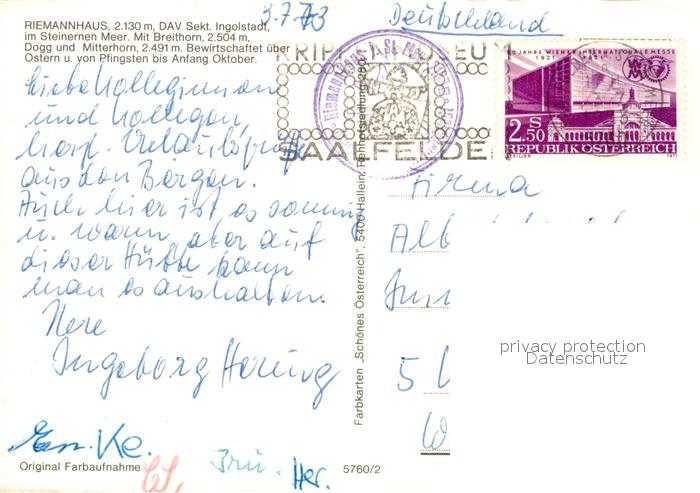 RIEMANNHAUS, 2.130 m, DAV Sekt. Ingolstadt,
im Steinernen Meer. Mit Breithorn, 2.504 m,
Dogg und Mitterhorn, 2.491 m. Bewirtschaftet über
Ostern u. von Pfingsten bis Anfang Oktober.
3.7.73
Deutschland
SAALFELDE
50 JAHRE WIENER INTERNATIONALE MESSE
1921 1971
2.50 S
REPUBLIK ÖSTERREICH
1971
Liebe Kolleginnen
und Kollegen,
herzl. Urlaubsgrüße
aus den Bergen.
Auch hier ist es sonnig
u. warm, aber auf
dieser Hütte kann
man es aushalten.
Ihre
Ingeborg
Firma
Alb
5
privacy protection
Datenschutz
Farbkarten „Schönes Österreich", 5400 Hallein, Rehhofsiedlung 280
Original Farbaufnahme
Brü.
Her.
5760/2